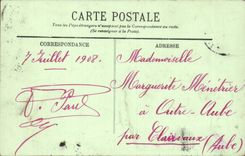 CARTE POSTALE
Tous les Pays étrangers n'acceptent pas la Correspondance au recto.
(Se renseigner à la Poste)
CORRESPONDANCE
ADRESSE
7 Juillet 1908.
Mademoiselle
Marguerite Ménétrier
à Outre-Aube
par Clairvaux
(Aube)